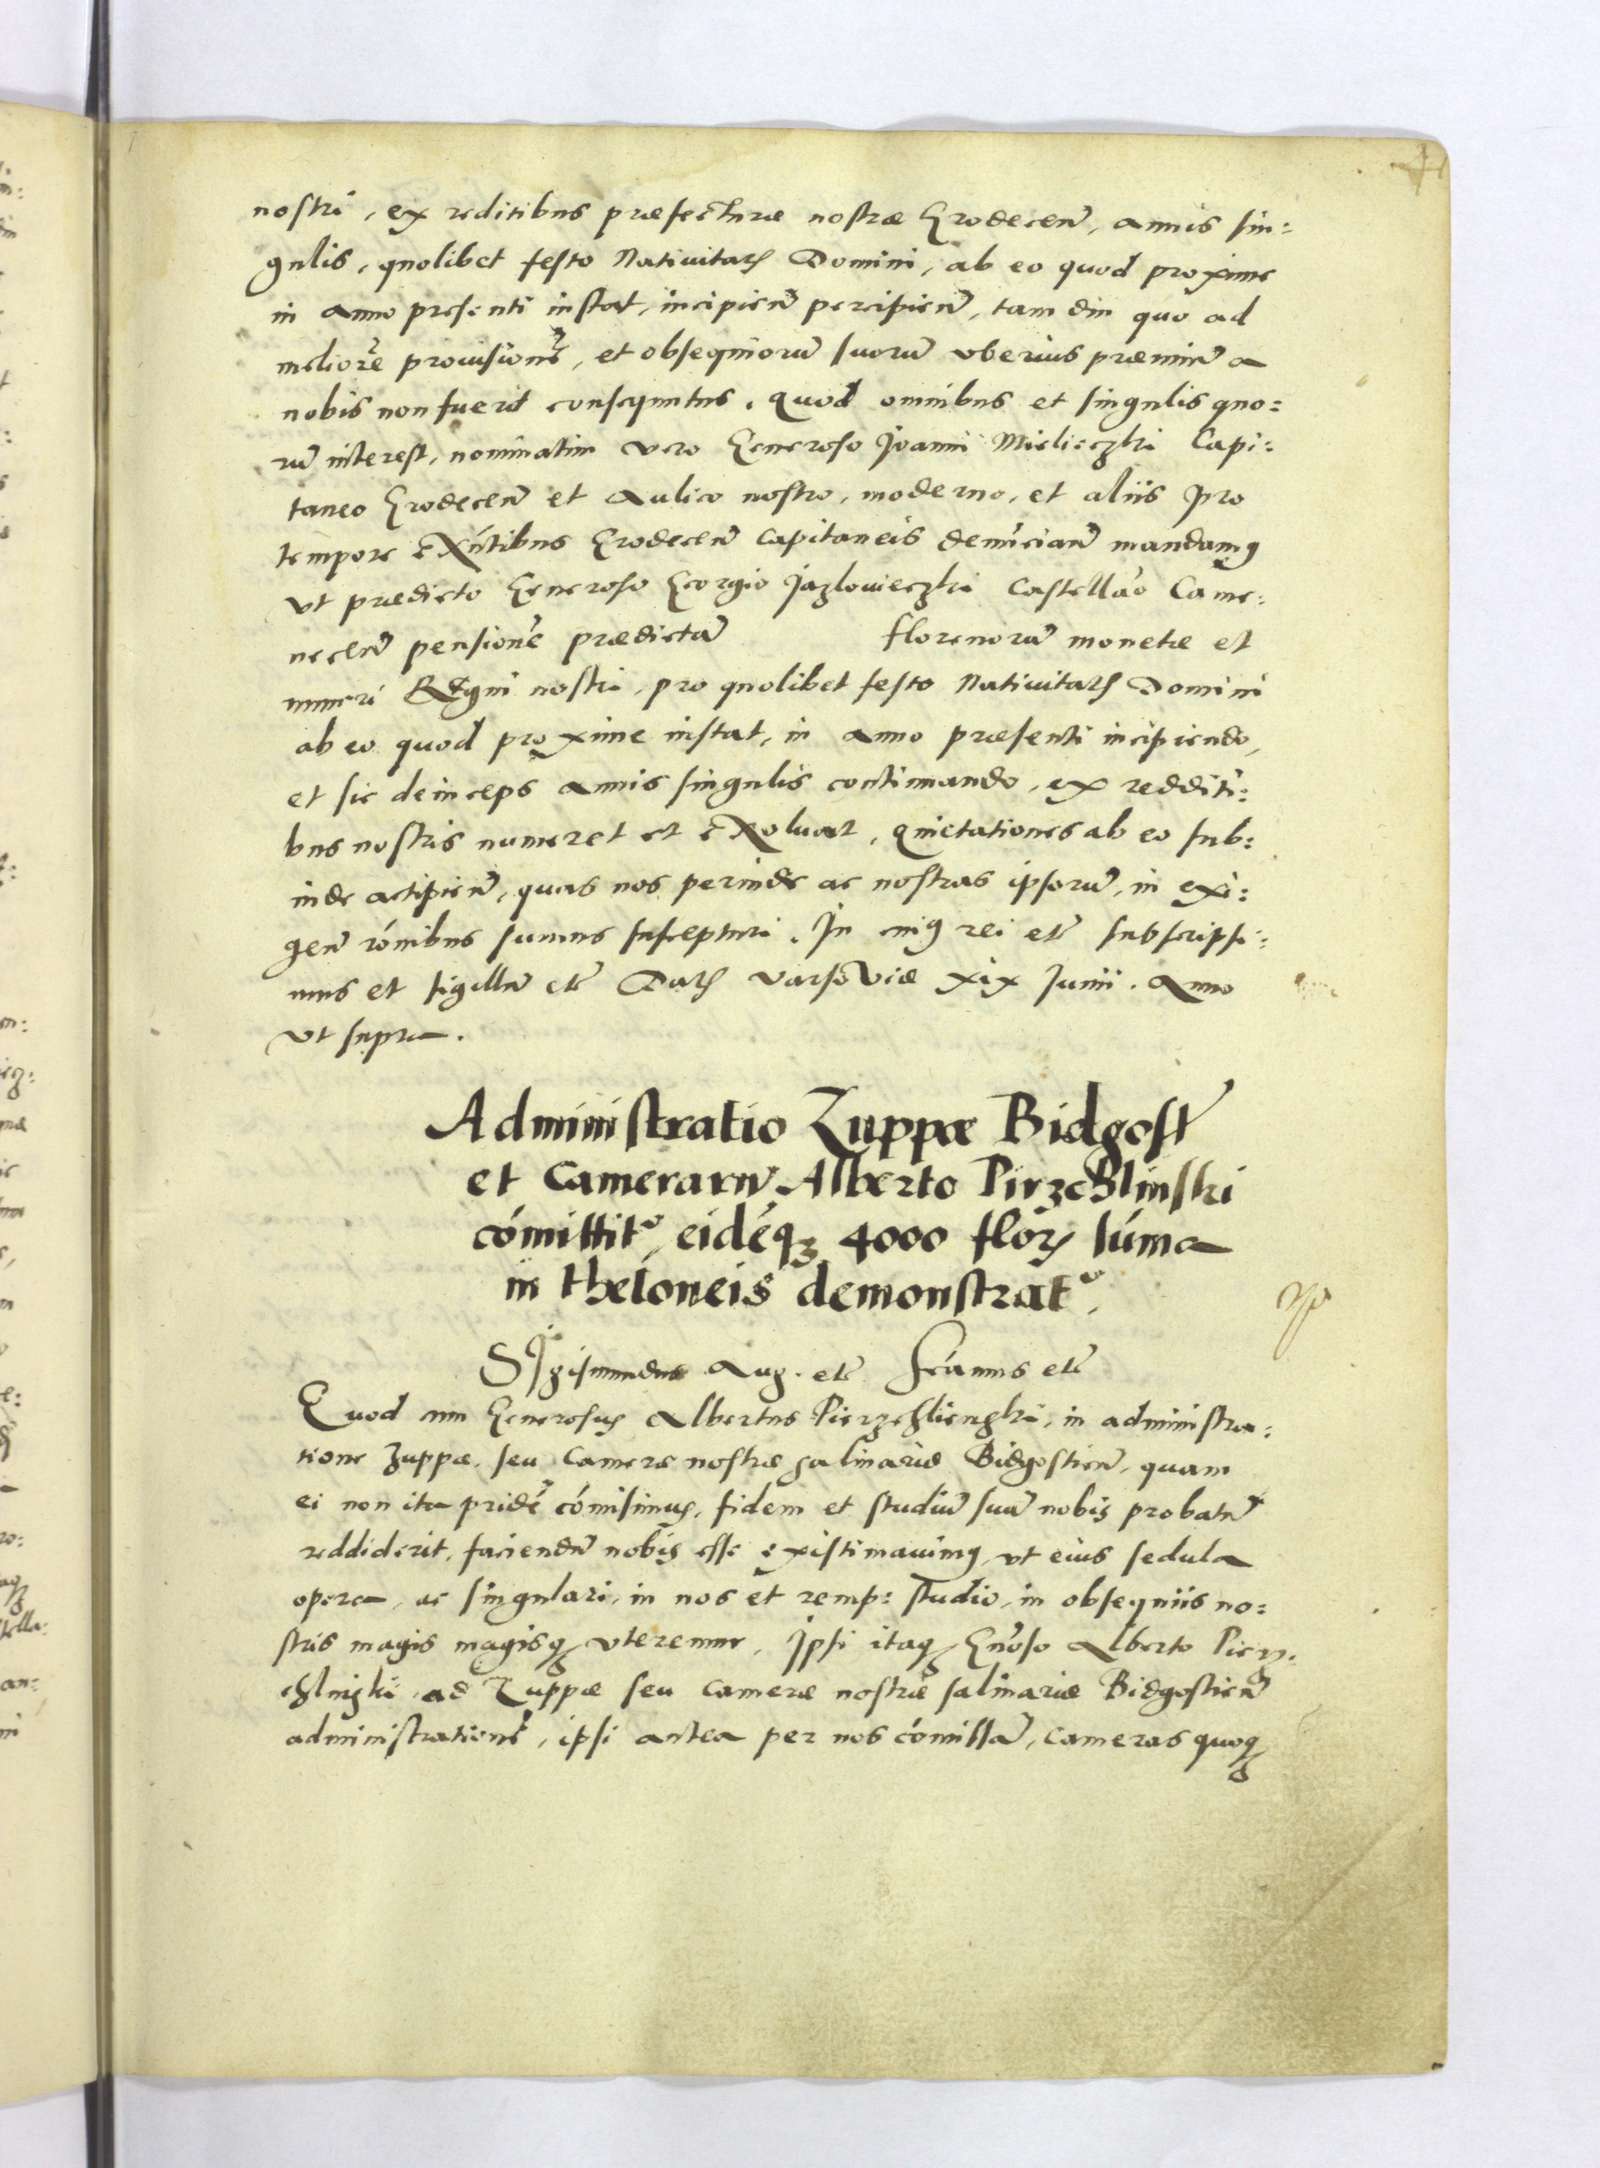 nostri, ex reditibus præfecturæ nostræ Grodecen̄, annis sin:
gulis, quolibet festo Natiuitatꝭ Domini, ab eo quod proxime
in anno presenti instat, incipien̄ percipien̄, tam diu quo ad
meliorē prouisionē, et obsequiorū suorū vberius præmiū a
nobis non fuerit consequutus. Quod omnibus et singulis quo:
rū interest, nominatim vero Generoso Joanni Mielieczki Capi:
taneo Grodecen̄ et Aulico nostro, moderno, et aliis pro
tempore exn̄tibus Grodecen̄ Capitaneis denūcian̄ mandamꝯ
vt prædicto Generoso Georgio Jazlowieczki Castellāo Came:
necen̄ pensionē prædictā florenorū monetæ et
numeri Regni nostri, pro quolibet festo Natiuitatꝭ Domini
ab eo quod proxime instat, in anno præsenti incipiendo,
et sic deinceps annis singulis continuando, ex redditi:
bus nostris numeret et exoluat, quietationes ab eo sub:
inde accipien̄, quas nos perinde ac nostras ipsorū, in exi:
gen̄ rōnibus sumus suscepturi. In cuiꝯ rei etc̄ subscripsi:
mus et sigillū etc̄ Datꝭ Varsoviæ xix Junii. Anno
vt supra.
Administratio Zuppæ Bidgost̄
et Camerarū Alberto PirzchLinski
cōmittitᵘʳ, eidēqꝫ 4000 florꝭ sūma
in theloneis demonstratᵘʳ.
Sigismundus Aug. etc̄ scāmus etc̄
Quod cum Generosus Albertus Pierzchlienski, in administra:
tione Zuppæ, seu Cameræ nostræ salinariæ Bidgostien̄, quam
ei non ita pridē cōmisimus, fidem et studiū suū nobis probatū
reddiderit, faciendū nobis esse existimauimꝯ, vt eius sedula
opera, ac singulari, in nos et remp: studio, in obsequiis no:
stris magis magisqꝫ vteremur. Ipsi itaqꝫ Gn̄oso Alberto Pierz:
chlinski, ad Zuppæ seu Cameræ nostræ salinariæ Bidgostien̄
administrationē, ipsi antea per nos cōmissā, Cameras quoqꝫ